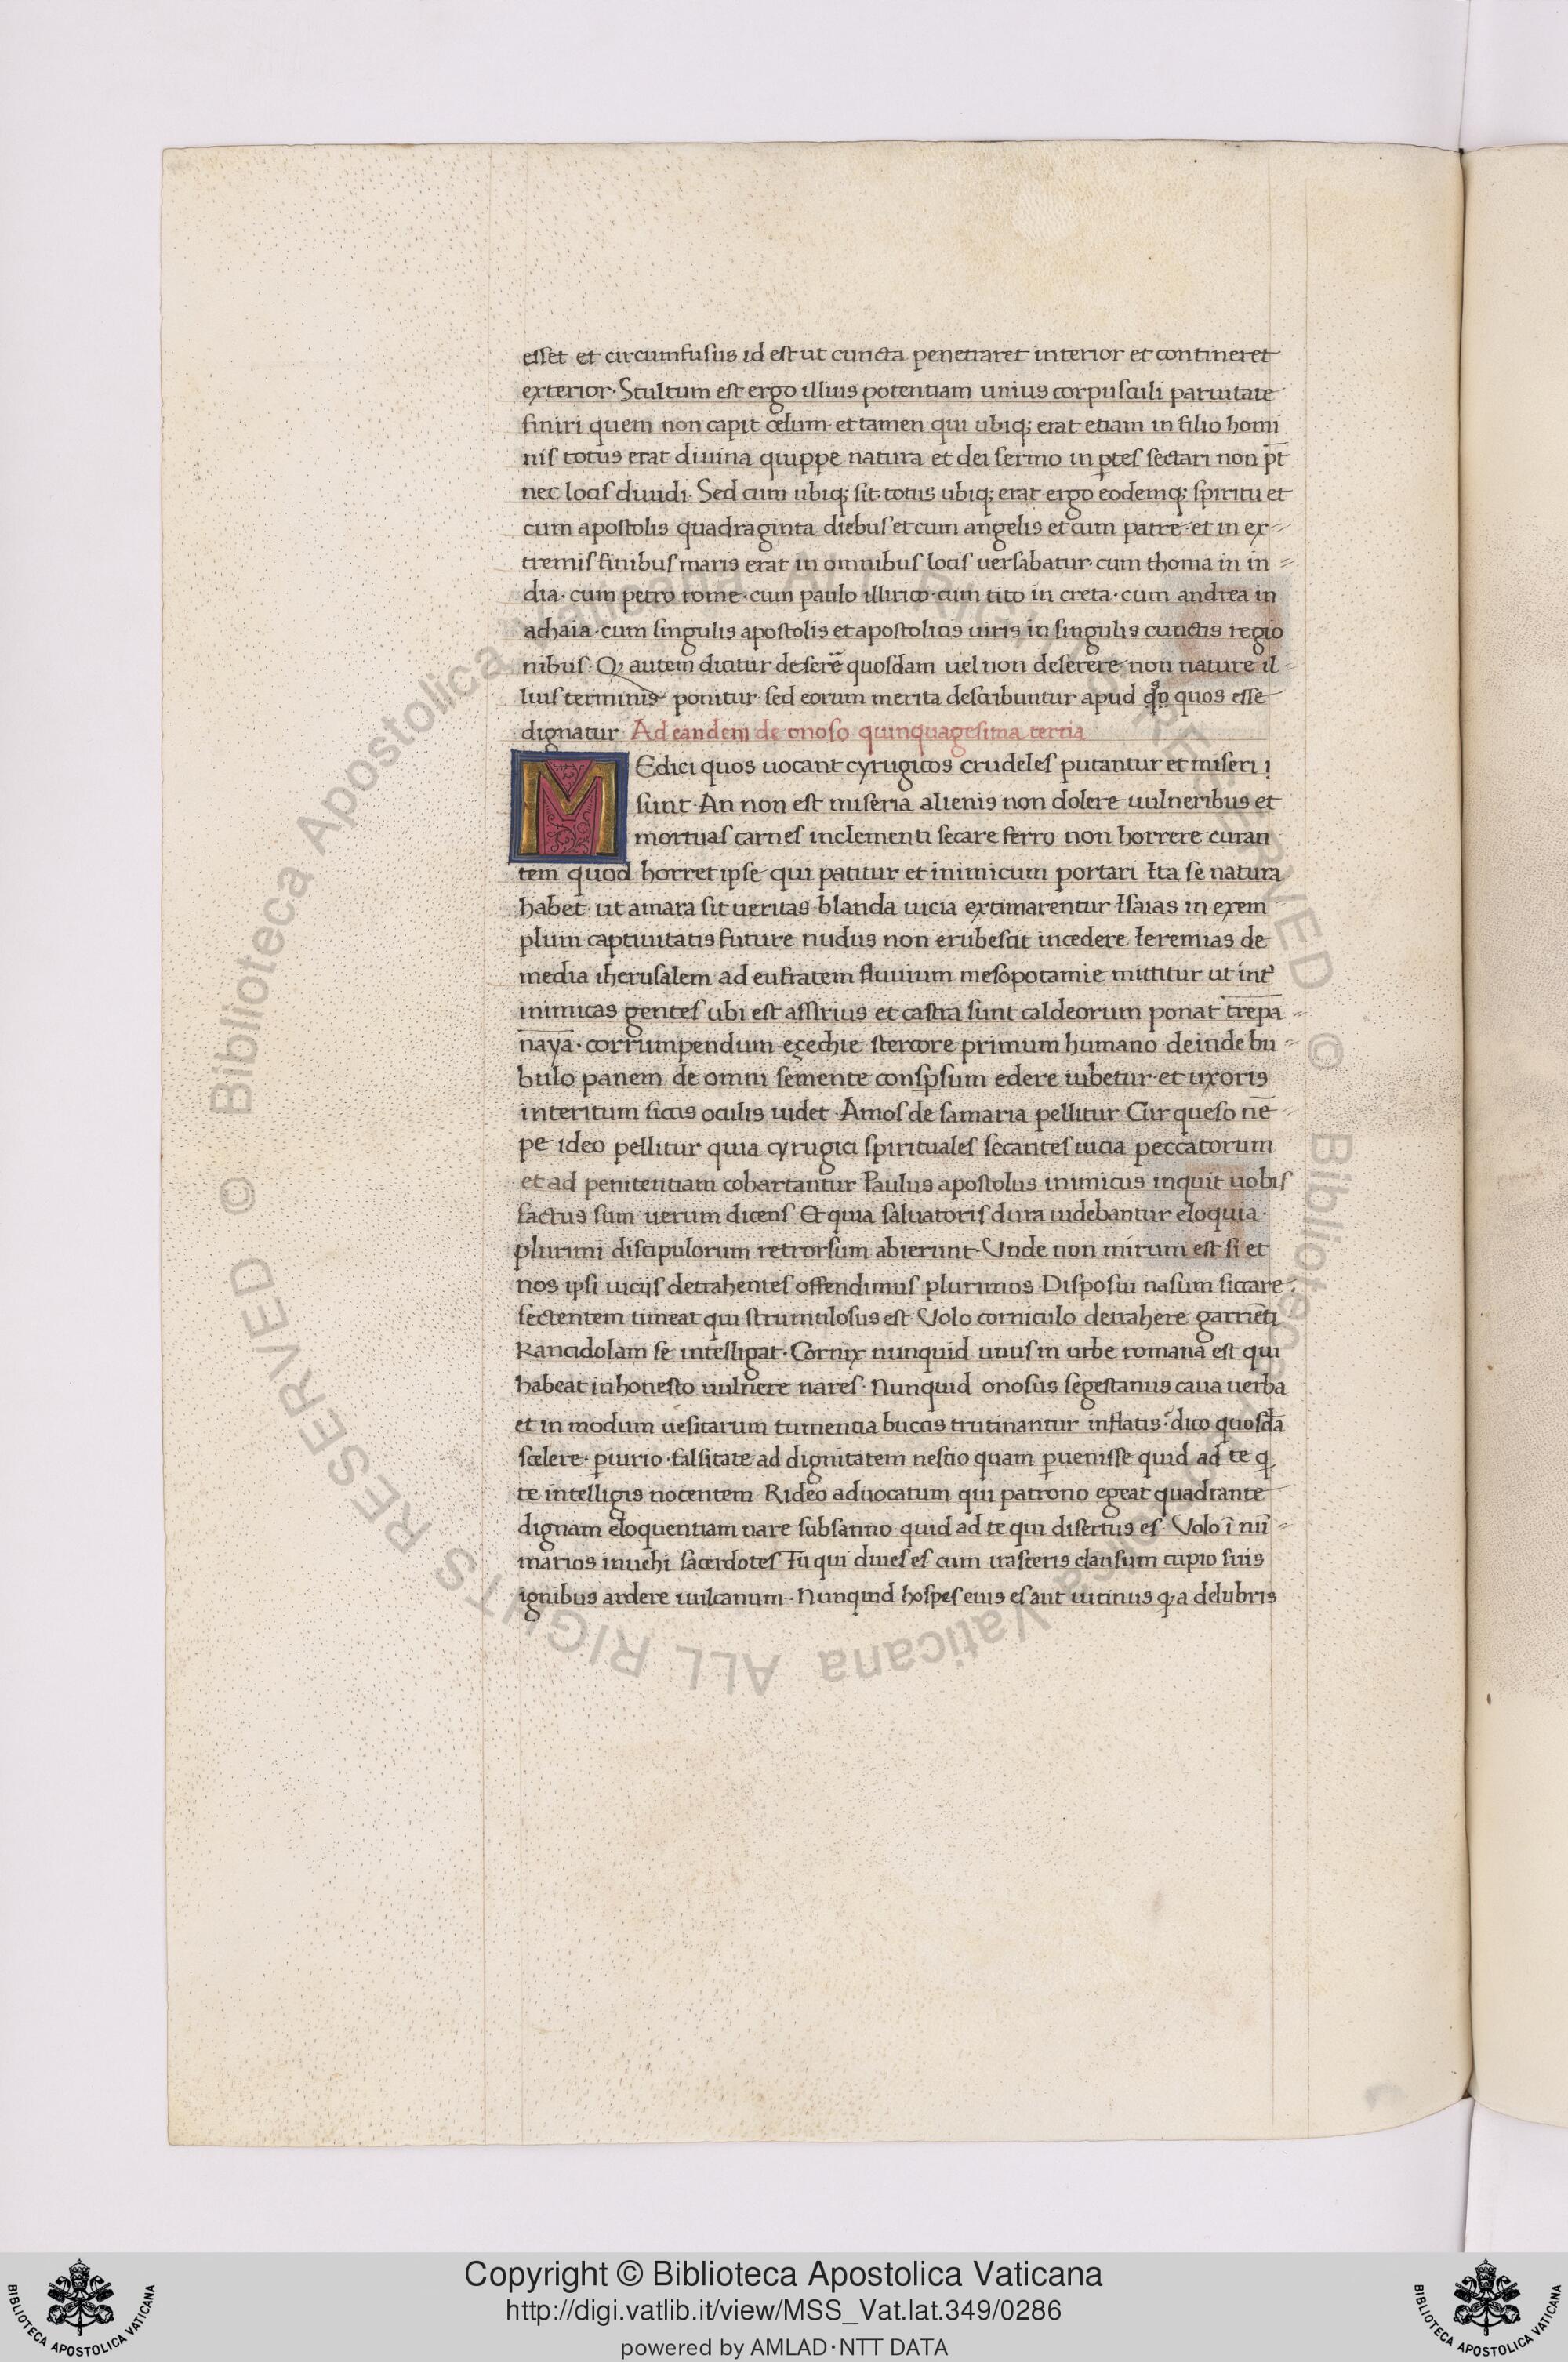 esset et circumfusus id est ut cuncta penetraret interior et contineret
exterior· Stultum est ergo illius potentiam unius corpusculi paruitate
finiri quem non capit celum· et tamen qui ubiq; erat etiam in filio homi
nis totus erat diuina quippe natura et dei sermo in ptes sectari non pt̄
nec locis diuidi· Sed cum ubiq; sit totus ubiq; erat ergo eodemq; spiritu et
cum apostolis quadraginta diebus et cum angelis et cum patre· et in ex-
tremis finibus maris erat in omnibus locis uersabatur· cum thoma in in-
dia· cum petro rome· cum paulo illirico· cum tito in creta· cum andrea in
achaia· cum singulis apostolis et apostolicis uiris in singulis cunctis regio
nibus· Q autem dicitur deserē quosdam uel non deserere· non nature il-
lius terminis ponitur· sed eorum merita describuntur apud quos esse
dignatur· Ad eandem de onoso quinquagesima tertia
MEdici quos uocant cyrugicos crudeles putantur et miseri
sunt· An non est miseria alienis non dolere uulneribus et
mortuas carnes inclementi secare ferro non horrere curan
tem quod horret ipse qui patitur et inimicum portari Ita se natura
habet· ut amara sit ueritas· blanda uicia extimarentur Isaias in exem
plum captiuitatis future nudus non erubescit incedere Ieremias de
media iherusalem ad eufratem fluuium mesopotamie mittitur ut int̄
inimicas gentes ubi est assirius et castra sunt caldeorum ponat trepa-
naya· corrumpendum· eçechie stercore primum humano deinde bu-
bulo panem de omni semente conspsum edere iubetur· et uxoris
interitum siccis oculis uidet· Amos de samaria pellitur Cur queso nē
pe ideo pellitur quia cyrugici spirituales secantes uicia peccatorum
et ad penitentiam cohartantur· Paulus apostolus inimicus inquit uobis
factus sum uerum dicens Et quia saluatoris dura uidebantur eloquia·
plurimi discipulorum retrorsum abierunt· Unde non mirum est si et
nos ipsi uicijs detrahentes offendimus plurimos Disposui nasum siccare·
sectentem timeat qui strumulosus est· Volo corniculo detrahere garriēti
Rancidolam se intelligat· Cornix nunquid unus in urbe romana est qui
habeat inhonesto uulnere nares· Nunquid onosus segestanus caua uerba
et in modum uesicarum tumentia buccis trutinantur inflatis· dico quosdā
scelere· piurio· falsitate ad dignitatem nescio quam puenisse quid ad te q
te intelligis nocentem Rideo aduocatum qui patrono egeat quadrante
dignam eloquentiam nare subsanno· quid ad te qui disertus es· Volo ī nū-
marios inuehi sacerdotes Tu qui diues es cum irasceris clausum cupio suis
ignibus ardere uulcanum· Nunquid hospes eius es aut uicinus q a delubris
Copyright © Biblioteca Apostolica Vaticana
http://digi.vatlib.it/view/MSS_Vat.lat.349/0286
powered by AMLAD·NTT DATA
BIBLIOTECA APOSTOLICA VATICANA
BIBLIOTECA APOSTOLICA VATICANA
© Biblioteca Apostolica Vaticana ALL RIGHTS RESERVED © Biblioteca Apostolica Vaticana ALL RIGHTS RESERVED